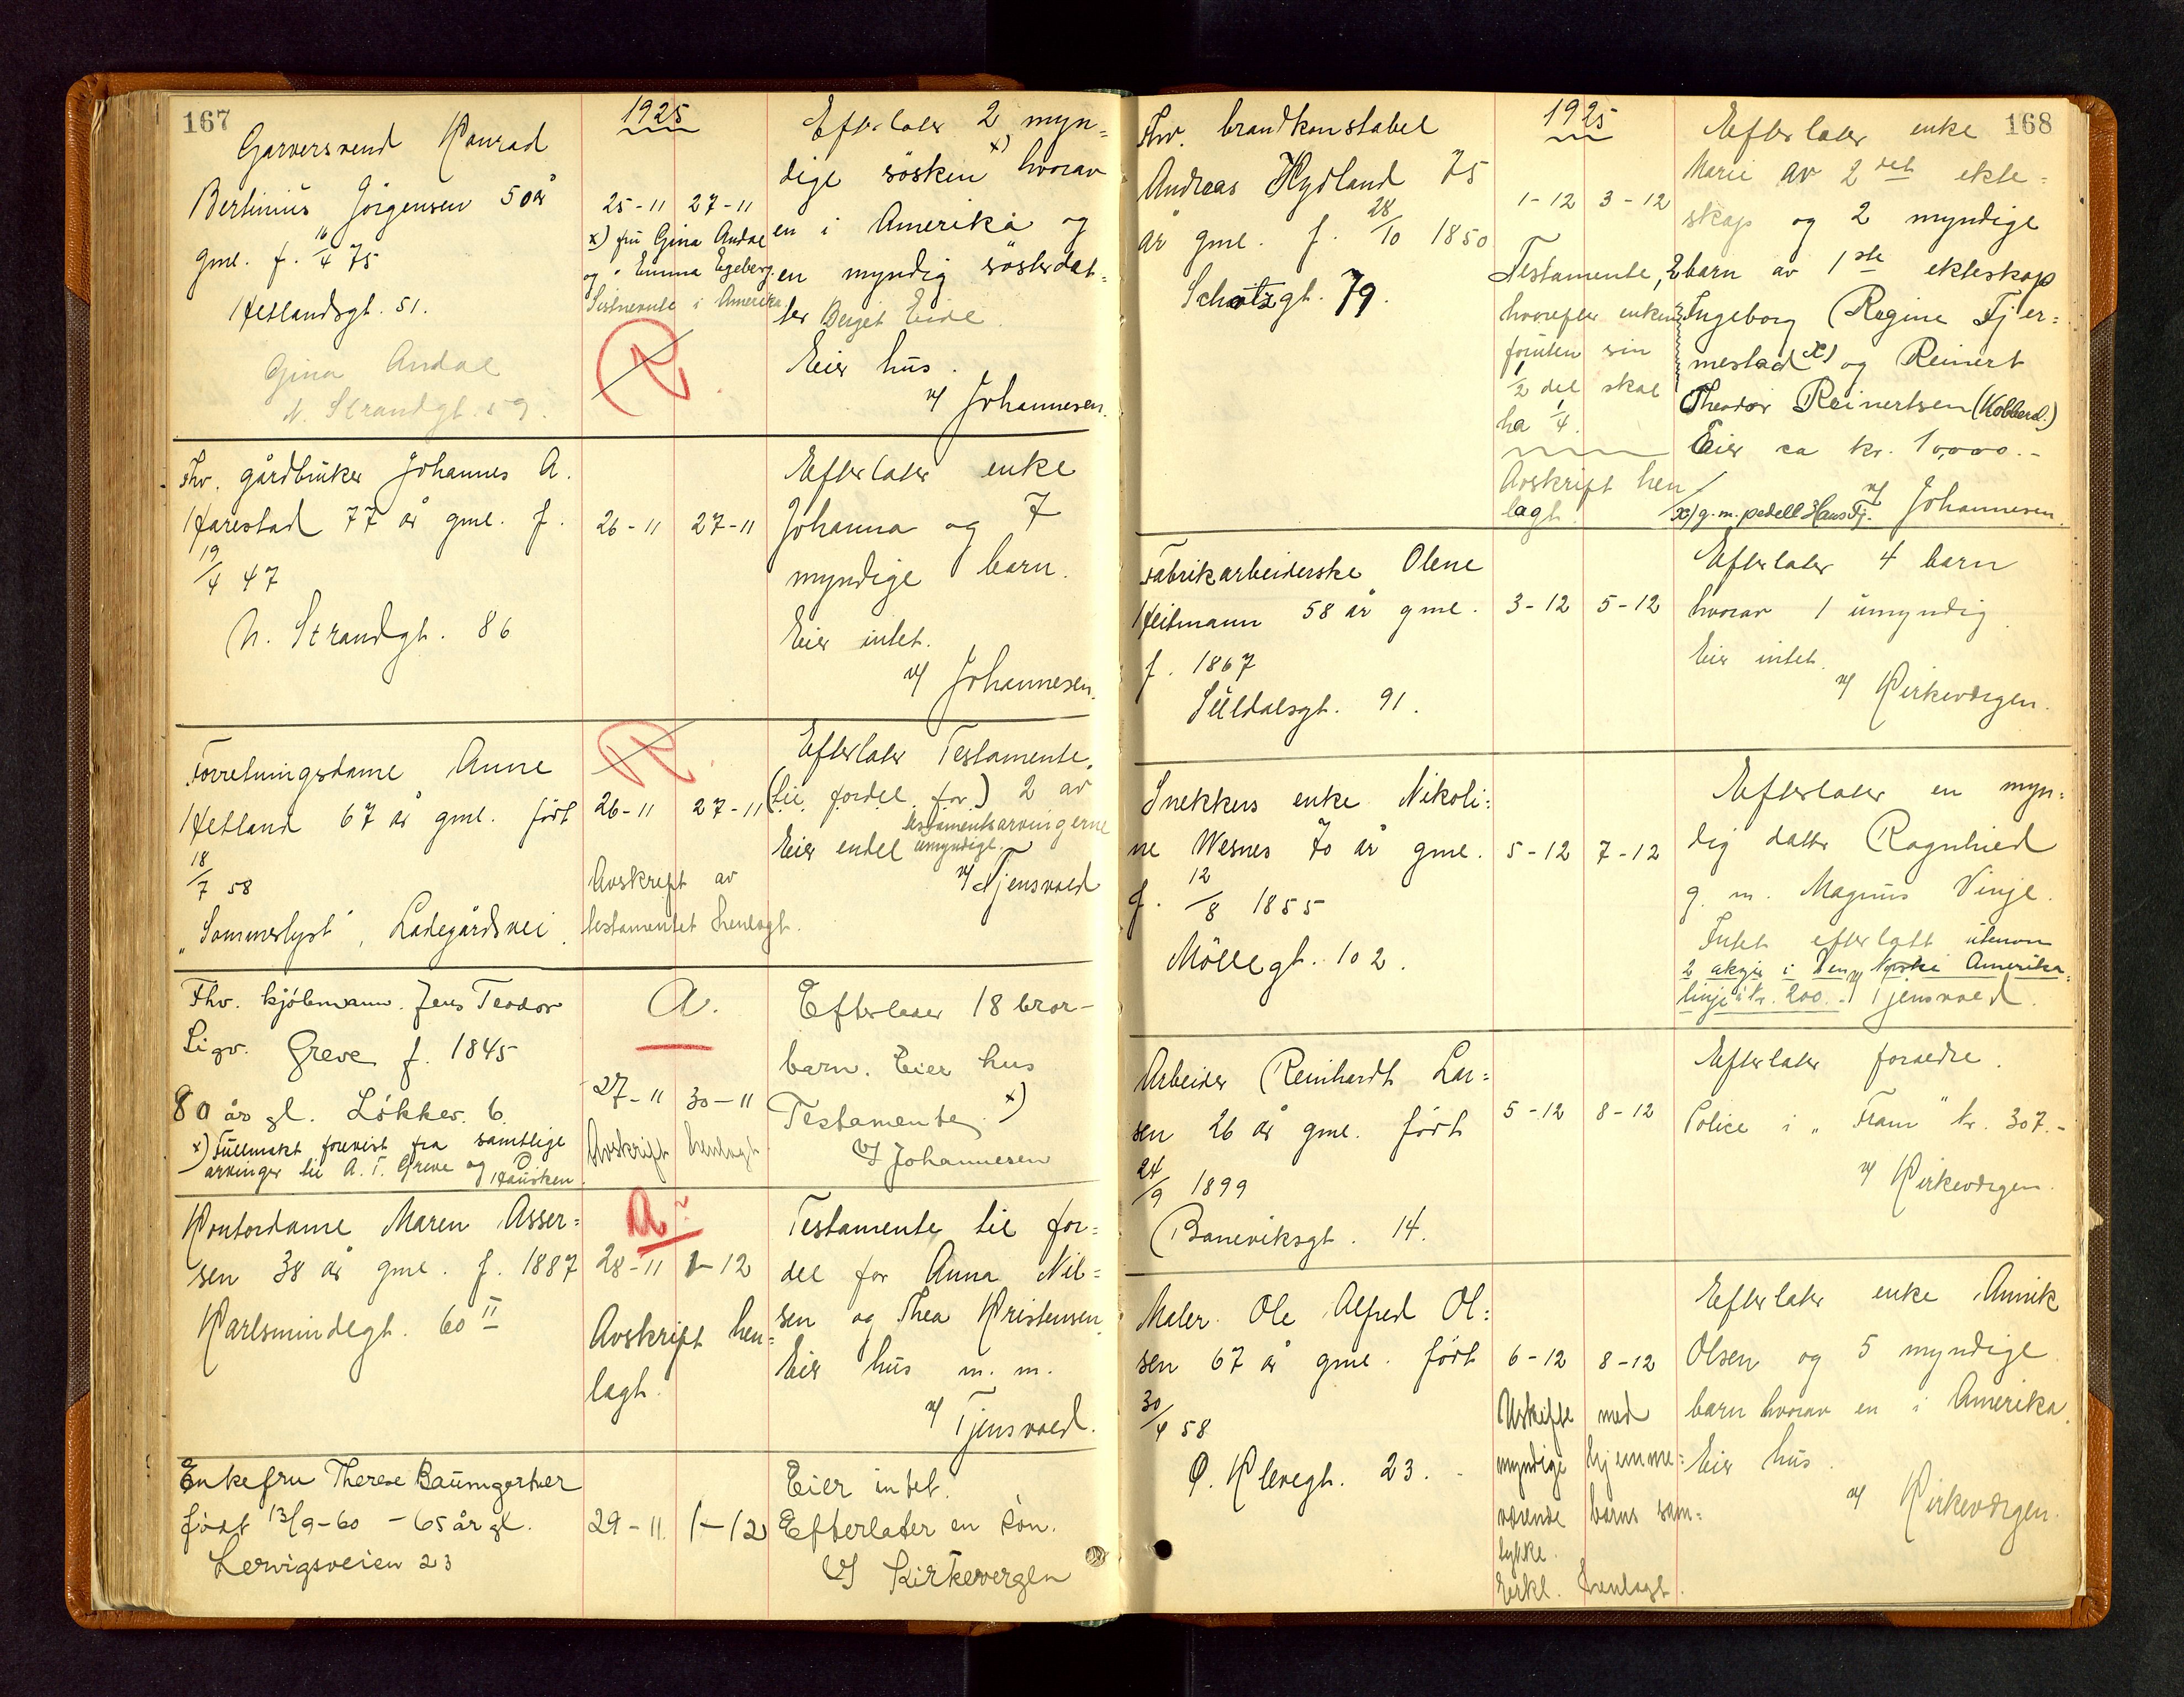 167
1925
Garversvend Konrad
Bertinius Jörgensen 50 år
gml. f. 16/4 75
Hetlandsgt. 51.
Gina Andal
N. Strandgt. 59.
25-11 27-11
x) fru Gina Andal
og " Emma Egeberg.
Sistnevnte i Amerika.
R.
Efterlater 2 myn=
dige sösken x) hvorav
en i Amerika og
en myndig sösterdat=
ter Berget Eide.
Eier hus.
v/ Johannesen.
Fhv. gårdbruker Johannes A.
Harestad 77 år gml. f.
19/4 47
N. Strandgt. 86
26-11 27-11
Efterlater enke
Johanna og 7
myndige barn.
Eier intet.
v/ Johannesen.
Forretningsdame Anne
Hetland 67 år gml. født
18/7 58
"Sommerlyst", Ladegårdsvei.
R.
26-11 27-11
Avskrift av
testamentet henlagt.
Efterlater Testamente.
(til fordel for) 2 av
testamentsarvingerne
Eier endel umyndige.
v/ Tjensvold
Fhv. kjöbmann Jens Teodor
Sigv. Greve f. 1845
80 år gl. Løkkev. 6.
x) Fullmakt forevist fra samtlige
arvinger til A. T. Greve og Hausken
A.
27-11 30-11
Avskrift henlagt
Efterlader 18 bror-
barn. Eier hus
Testamente x)
v/ Johannesen
Kontordame Maren Asser=
sen 38 år gml. f. 1887
Karlsmindegt. 60 II
A
28-11 1-12
Avskrift hen=
lagt.
Testamente til for=
del for Anna Nil=
sen og Thea Kristensen.
Eier hus m. m.
v/ Tjensvold.
Enkefru Therese Baumgartner
født 13/9-60 - 65 år gl.
Lervigsveien 23
29-11. 1-12
Eier intet.
Efterlater en søn.
v/ Kirkevergen
168
1925
Fhv. brandkonstabel
Andreas Hydland 75
år gml. f. 28/10 1850
Schøtzgt. 79.
1-12 3-12
Testamente,
hvorefter enken
foruten sin
1/2 del skal
ha 1/4.
Avskrift hen
lagt.
Efterlater enke
Marie av 2det ekte=
skap og 2 myndige
2 barn av 1ste ekteskap
Ingeborg Regine Tjer=
mestad x) og Reinert
Theodor Reinertsen (Kobberd.)
Eier ca kr. 10,000.-
v/ Johannesen.
x) g. m. pedell Hans Tj.
Fabrikarbeiderske Olene
Heitmann 58 år gml.
f. 1867
Suldalsgt. 91.
3-12 5-12
Efterlater 4 barn
hvorav 1 umyndig.
Eier intet.
v/ Kirkevergen.
Snekkers enke Nikoli=
ne Wesnes 70 år gml.
f. 12/8 1855
Möllegt. 102.
5-12 7-12
Efterlater en myn=
dig datter Ragnhild
g. m. Magnus Vinje.
Intet efterlatt utenom
2 aksjer i Den Norske Amerika=
linje à kr. 200.-
v/ Tjensvold.
Arbeider Reinhardt Lar=
sen 26 år gml. født
24/9 1899
Baneviksgt. 14.
5-12 8-12
Efterlater foraedre.
Police i "Fram" kr. 307.-
v/ Kirkevergen.
Maler Ole Alfred Ol=
sen 67 år gml. født
30/4 58
Ø. Klevegt. 23.
6-12 8-12
Uskifte med
myndige hjemme=
værende barns sam=
tykke.
Erkl. henlagt.
Efterlater enke Annik
Olsen og 5 myndige
barn hvorav en i Amerika.
Eier hus.
v/ Kirkevergen.